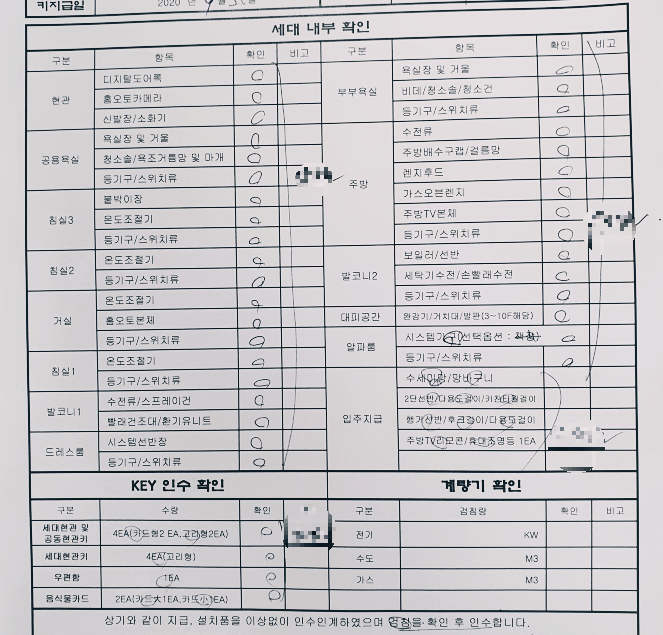 키지급일 2020 년 9월 30일
세대 내부 확인
구분 항목 확인 비고
현관 디지털도어록
홈오토카메라
신발장/소화기
공용욕실 욕실장 및 거울
청소솔/욕조거름망 및 마개
등기구/스위치류
침실3 붙박이장
온도조절기
등기구/스위치류
침실2 온도조절기
등기구/스위치류
거실 온도조절기
홈오토본체
등기구/스위치류
침실1 온도조절기
등기구/스위치류
발코니1 수전류/스프레이건
빨래건조대/환기유니트
드레스룸 시스템선반장
등기구/스위치류
구분 항목 확인 비고
부부욕실 욕실장 및 거울
비데/청소솔/청소건
등기구/스위치류
주방 수전류
주방배수구캡/걸름망
렌지후드
가스오븐렌지
주방TV본체
등기구/스위치류
발코니2 보일러/선반
세탁기수전/손빨래수전
등기구/스위치류
대피공간 완강기/거치대/발판(3~10F해당)
알파룸 시스템가구(선택옵션 : 책장)
등기구/스위치류
입주지급 수세미망/망바구니
2단선반/다용도걸이/키친타월걸이
행거선반/후크걸이/다용도걸이
주방TV리모콘/휴대조명등 1EA
KEY 인수 확인
구분 수량 확인
세대현관 및 공동현관키 4EA(카드형2 EA,고리형2EA)
세대현관키 4EA(고리형)
우편함 1EA
음식물카드 2EA(카드大1EA,카드小1EA)
계량기 확인
구분 검침량 확인 비고
전기 KW
수도 M3
가스 M3
상기와 같이 지급, 설치품을 이상없이 인수인계하였으며 명칭을 확인 후 인수합니다.